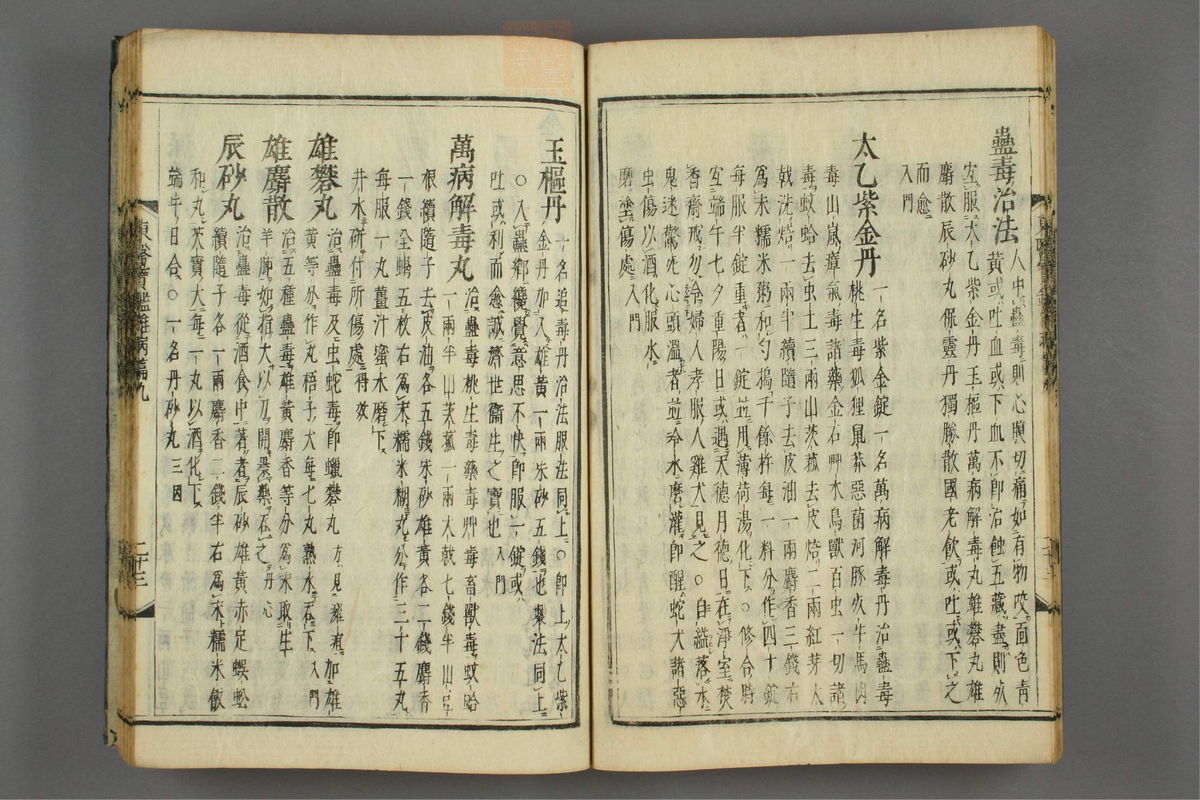 蠱毒治法 人中蠱毒則心腹切痛如有物咬面色青
黃或吐血或下血不卽治蝕五藏盡則死
宜服太乙紫金丹玉樞丹萬病解毒丸雄礬丸雄
麝散辰砂丸保靈丹獨勝散國老飮或吐或下之
而愈
入門
太乙紫金丹 一名紫金錠一名萬病解毒丹治蠱毒
桃生毒狐狸鼠莽惡菌河豚死牛馬肉
毒山嵐瘴氣毒諸藥金石艸木鳥獸百虫一切諸
毒蚊蛤去虫土三兩山茨菰去皮焙二兩紅芽大
戟洗焙一兩半續隨子去皮油一兩麝香三錢右
爲末糯米粥和勻搗千餘杵每一料分作四十錠
每服半錠重者一錠並用薄荷湯化下○修合時
宜端午七夕重陽日或遇天德月德日在淨室焚
香齋戒勿令婦人孝服人雞犬見之○自縊落水
鬼迷驚死心頭溫者並冷水磨灌卽醒蛇犬諸惡
虫傷以酒化服水
磨塗傷處 入門
玉樞丹 一名追毒丹治法服法同上○卽上太乙紫
金丹加入雄黃一兩朱砂五錢也製法同上
○入蠱鄕纔覺意思不快卽服一錠或
吐或利而愈誠濟世衞生之寶也 入門
萬病解毒丸 治蠱毒桃生毒藥毒艸毒畜獸毒蚊蛤
一兩半山茨菰一兩大戟七錢半山豆
根續隨子去皮油各五錢朱砂雄黃各二錢麝香
一錢全蝎五枚右爲末糯米糊丸分作三十五丸
每服一丸薑汁蜜水磨下
井水硏付所傷處 得效
雄礬丸 治蠱毒及虫蛇毒卽蠟礬丸 方見癰疽 加雄
黃等分作丸梧子大每七丸熟水呑下 入門
雄麝散 治五種蠱毒雄黃麝香等分爲末取生
羊肺如指大以刀開裹藥呑之 丹心
辰砂丸 治蠱毒從酒食中著者辰砂雄黃赤足蜈蚣
續隨子各一兩麝香二錢半右爲末糯米飮
和丸芡實大每一丸以酒化下
端午日合○一名丹砂丸 三因
東醫寶鑑雜病篇九
二十三